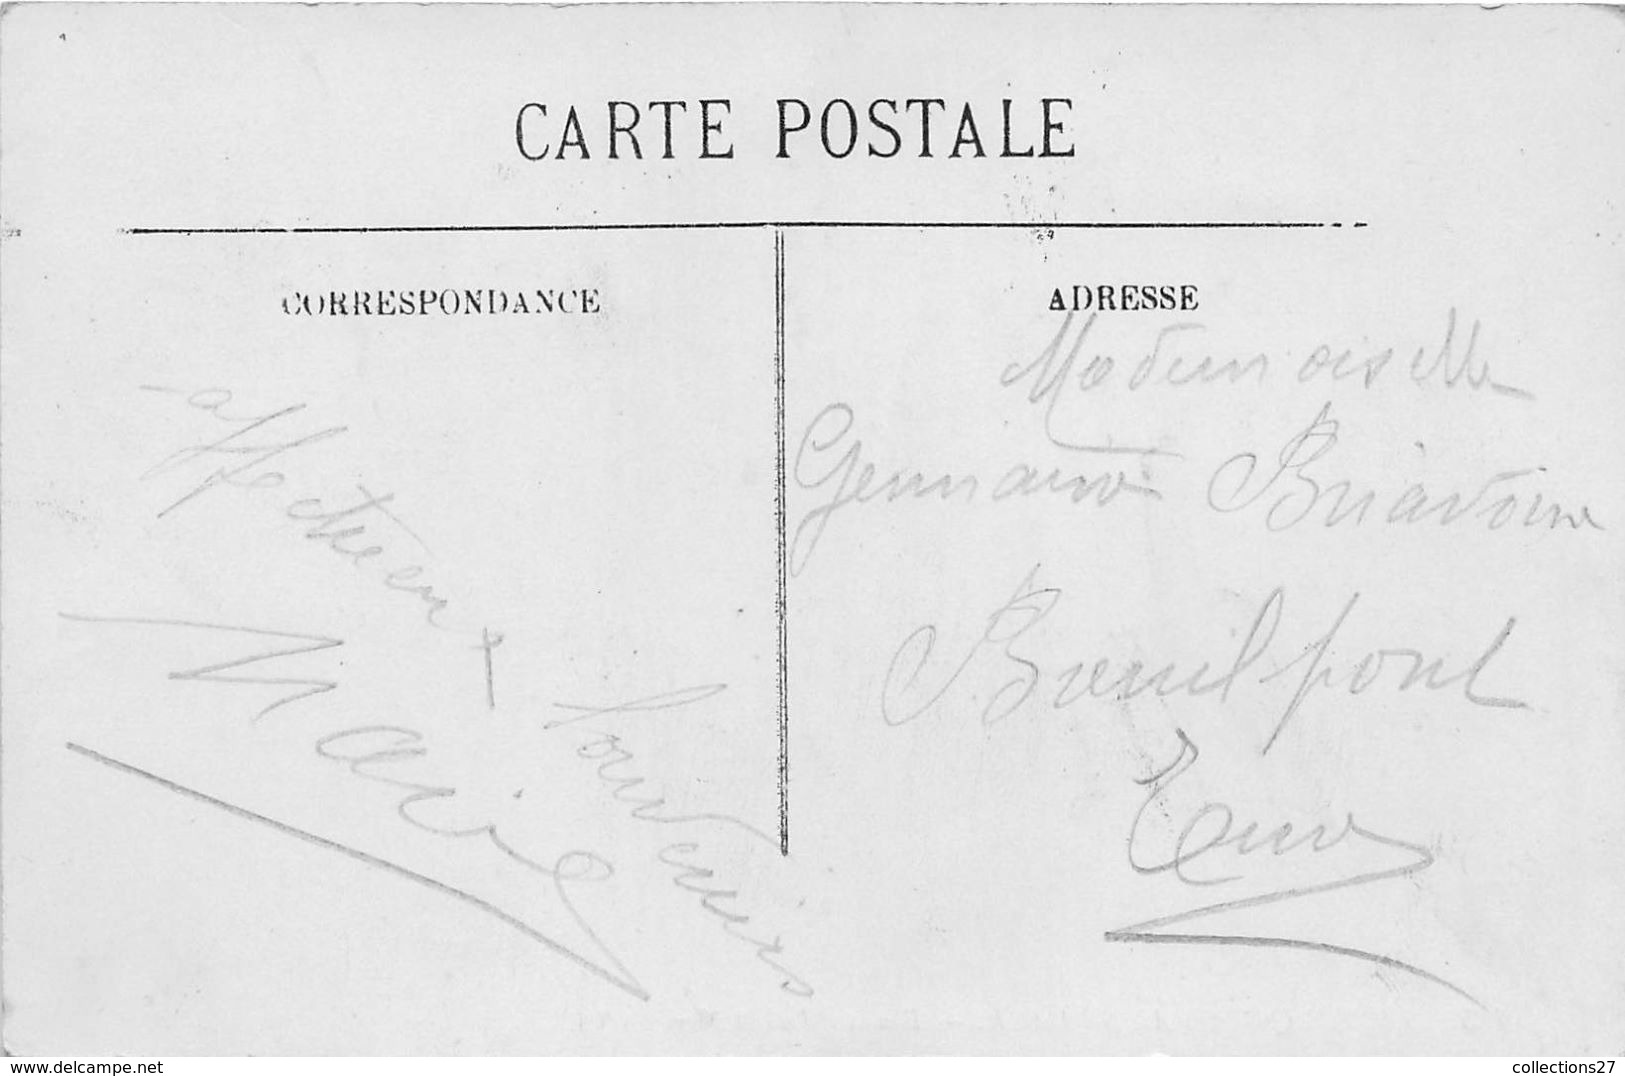 CARTE POSTALE
CORRESPONDANCE
affectueux souvenirs
Marie
ADRESSE
Mademoiselle
Germaine Briavoine
Breuilpont
Eure
delcampe.net
collections27